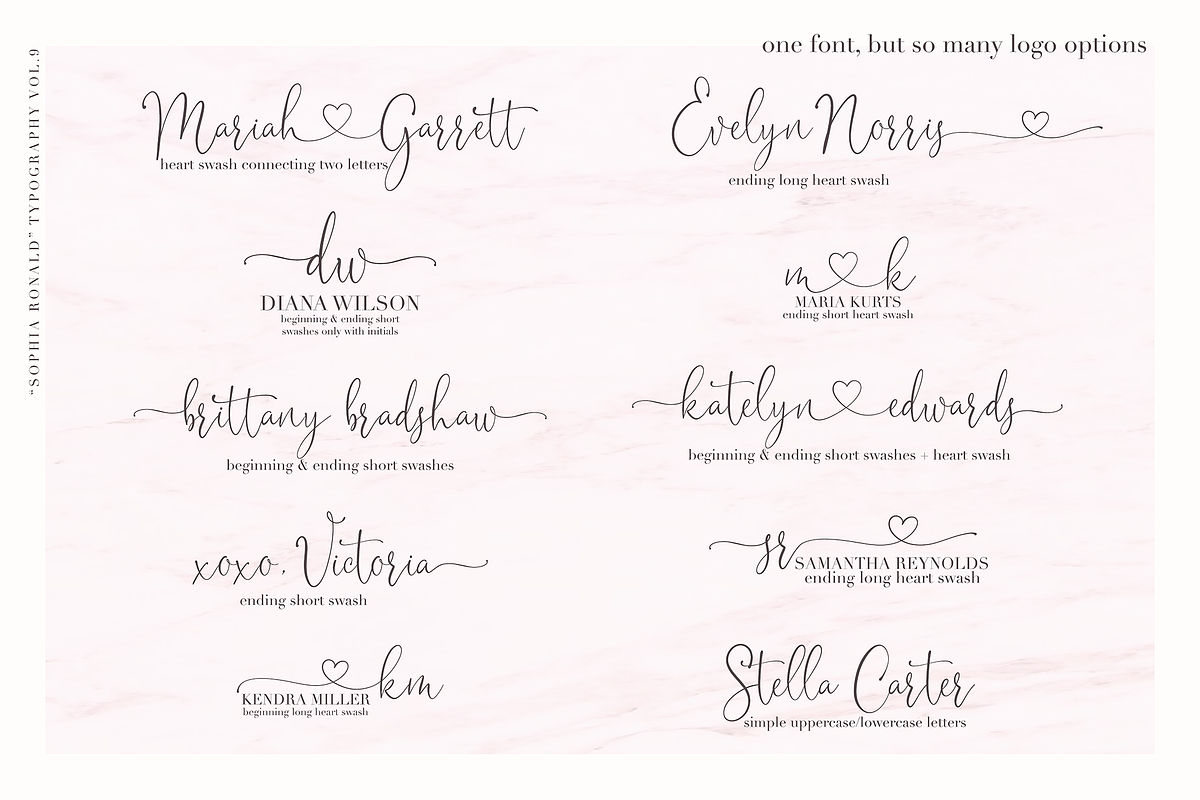 one font, but so many logo options
"SOPHIA RONALD" TYPOGRAPHY VOL.9
Mariah Garrett
heart swash connecting two letters
Evelyn Norris
ending long heart swash
dw
DIANA WILSON
beginning & ending short
swashes only with initials
m k
MARIA KURTS
ending short heart swash
brittany bradshaw
beginning & ending short swashes
katelyn edwards
beginning & ending short swashes + heart swash
xoxo, Victoria
ending short swash
sr
SAMANTHA REYNOLDS
ending long heart swash
km
KENDRA MILLER
beginning long heart swash
Stella Carter
simple uppercase/lowercase letters